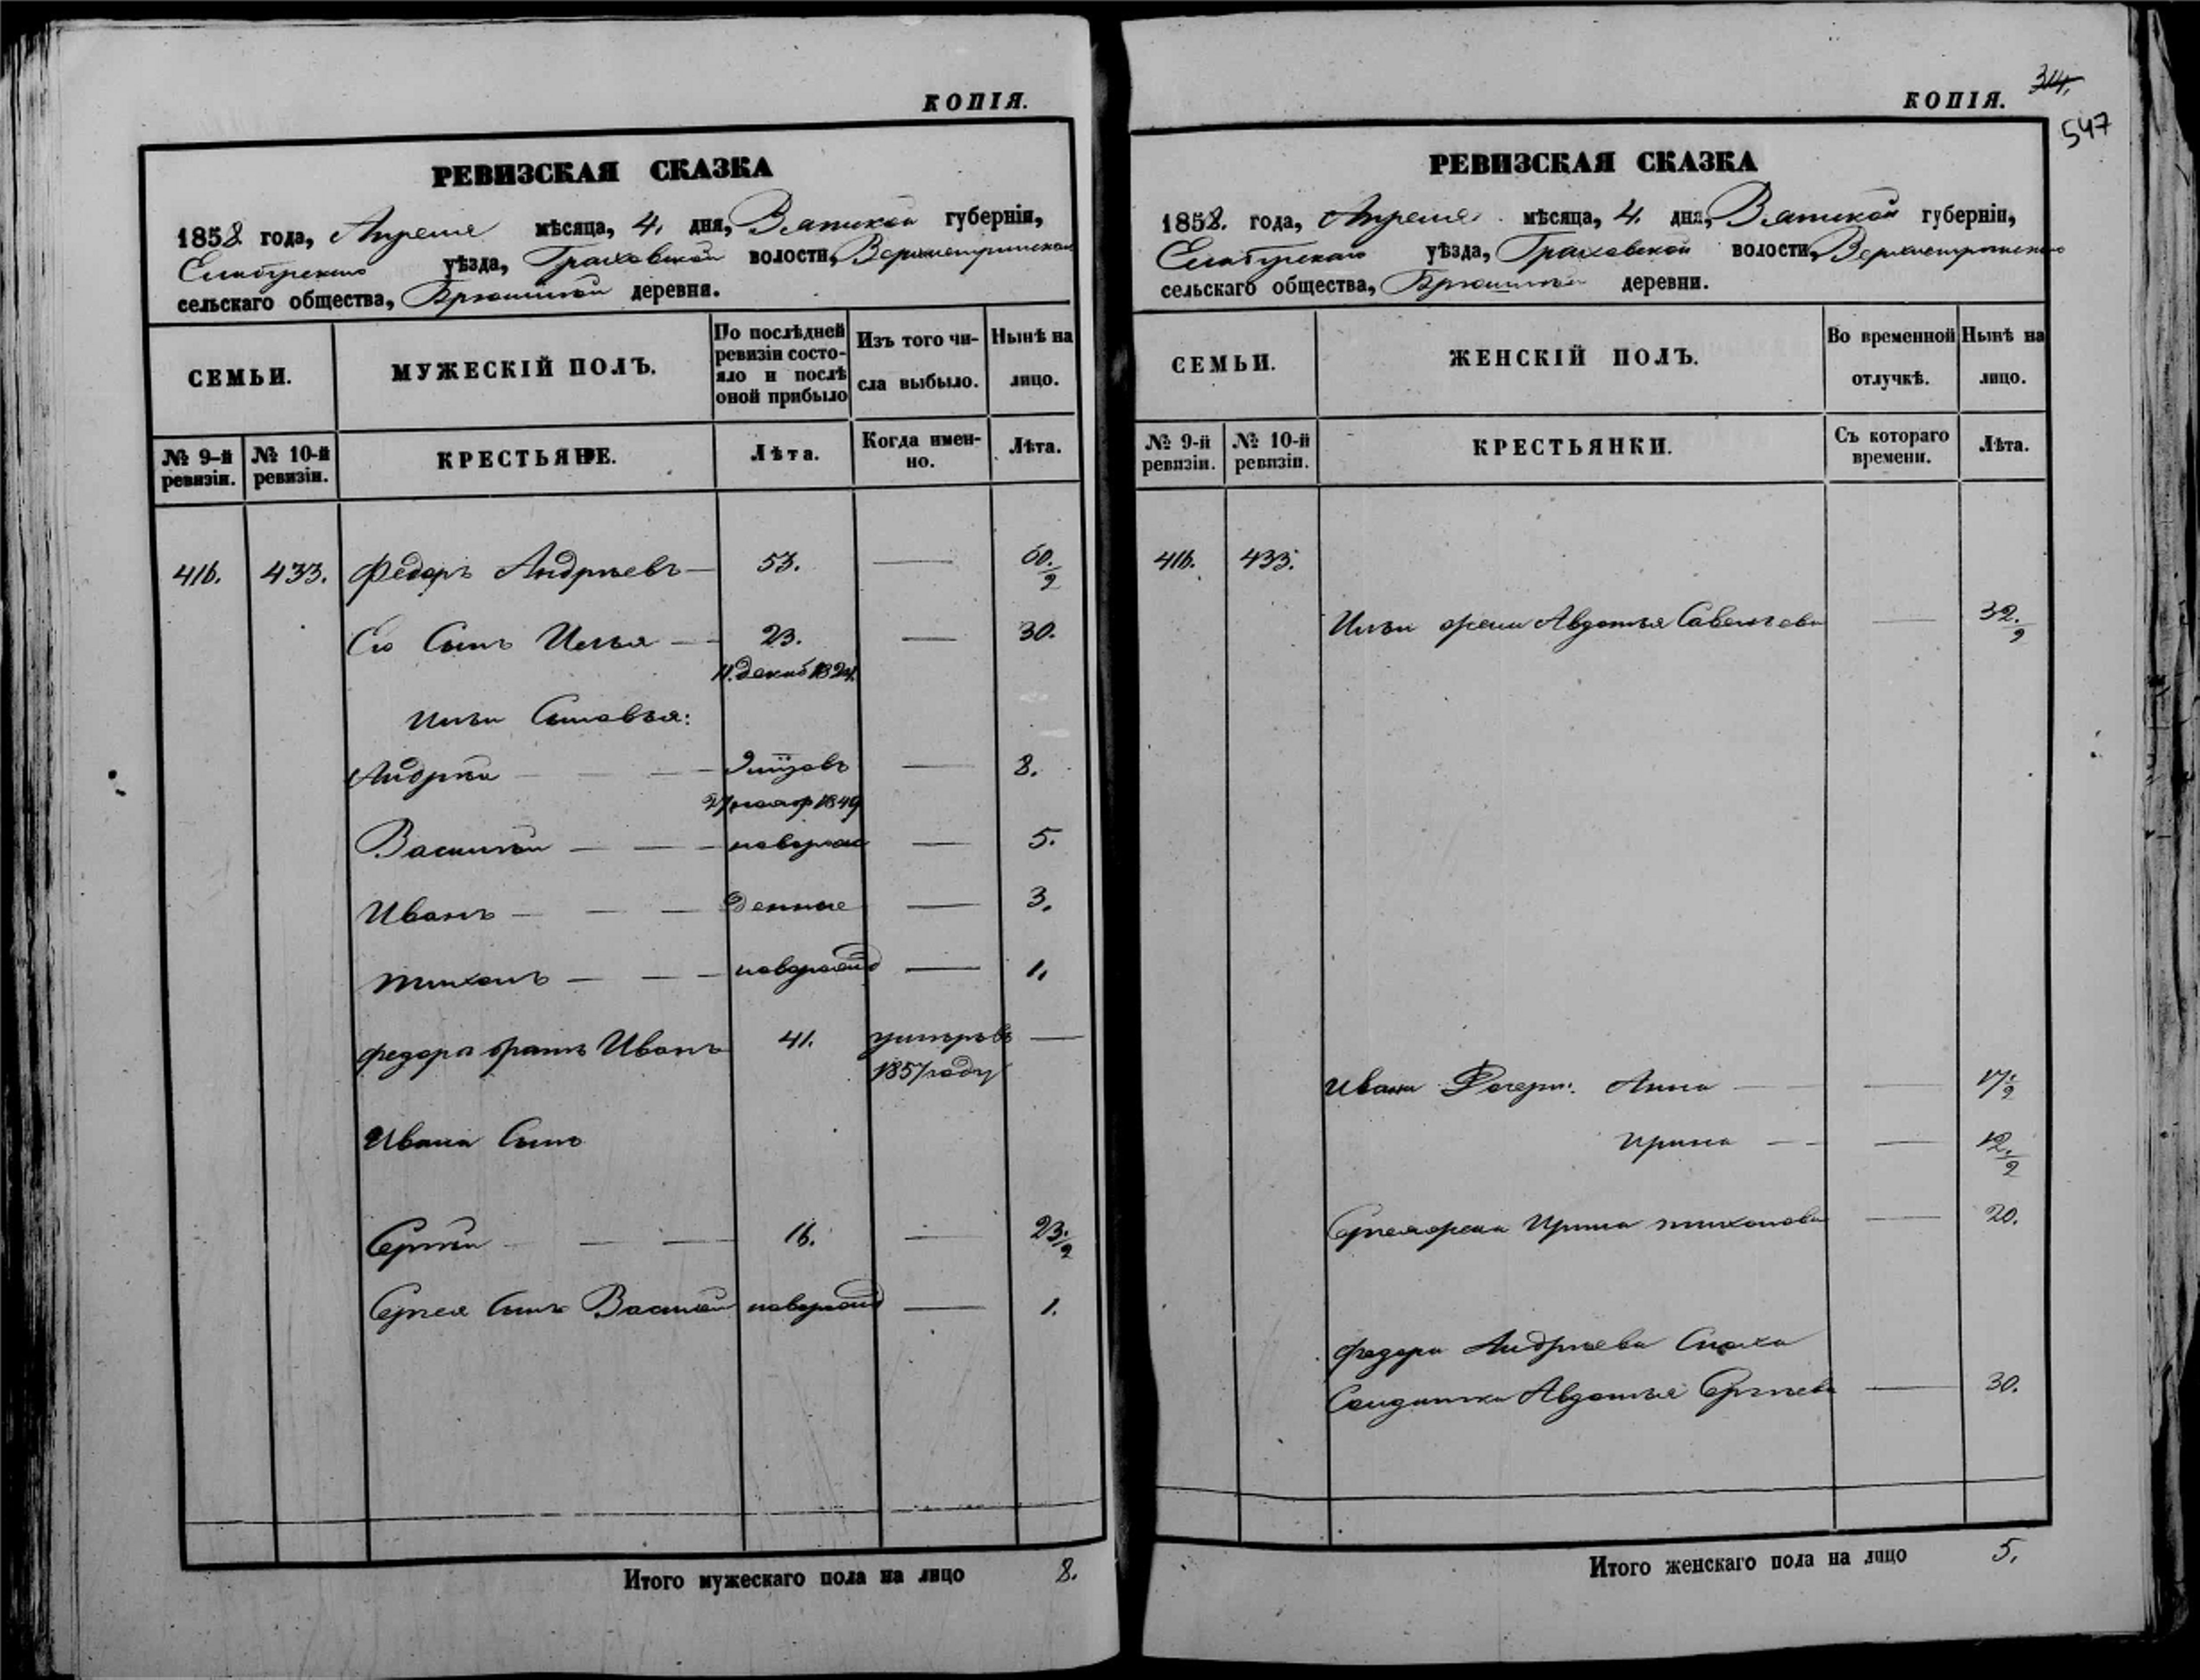 КОПІЯ.
РЕВИЗСКАЯ СКАЗКА
1858 года, Апреля мѣсяца, 4. дня, Вятской губерніи,
Елабужскаго уѣзда, Граховской волости,
сельскаго общества, деревни.
СЕМЬИ.
МУЖЕСКІЙ ПОЛЪ.
По послѣдней ревизіи состо-
яло и послѣ
оной прибыло
Изъ того чи-
сла выбыло.
Нынѣ на
лицо.
№ 9-й ревизіи.
№ 10-й ревизіи.
КРЕСТЬЯНЕ.
Лѣта.
Когда имен-
но.
Лѣта.
416. 433. Федоръ Андрѣевъ 53. — 60./2
Его Сынъ Илья 23. — 30.
Ильи Сыновья:
Андрѣй — 8.
Василій новорож — 5.
Иванъ денные — 3.
Тихонъ новорожд — 1.
Федора братъ Иванъ 41. умеръ въ —
1857 году
Ивана Сынъ
Сергѣй 16. — 23./2
Сергея Сынъ Василій новорожд — 1.
Итого мужескаго пола на лицо 8.
КОПІЯ.
314.
547
РЕВИЗСКАЯ СКАЗКА
1858. года, Апреля мѣсяца, 4. дня, Вятской губерніи,
Елабужскаго уѣзда, Граховской волости,
сельскаго общества, деревни.
СЕМЬИ.
ЖЕНСКІЙ ПОЛЪ.
Во временной
отлучкѣ.
Нынѣ на
лицо.
№ 9-й ревизіи.
№ 10-й ревизіи.
КРЕСТЬЯНКИ.
Съ котораго
времени.
Лѣта.
416. 433.
Ильи жена Авдотья Савельева — 32./2
Ивана Дочери: Анна — 17./2
Ирина — 12./2
Сергея жена Ирина Тихонова — 20.
Федора Андрѣева Сноха
Солдатка Авдотья Сергѣева — 30.
Итого женскаго пола на лицо 5.